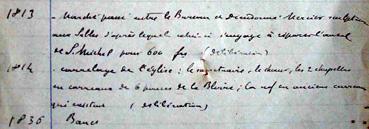 1813 - Marché passé entre le Bureau et Dieudonné Mercier sculpteur
aux Salles d'après lequel celui-ci s'engage à réparer l'autel
de St Michel pour 600 frs (délibération)
1814 - carrelage de l'église : le sanctuaire, le chœur, les 2 chapelles
en carreaux de 6 pouces de la ; la nef en anciens carreaux
qui existent (délibération)
1836 Bancs